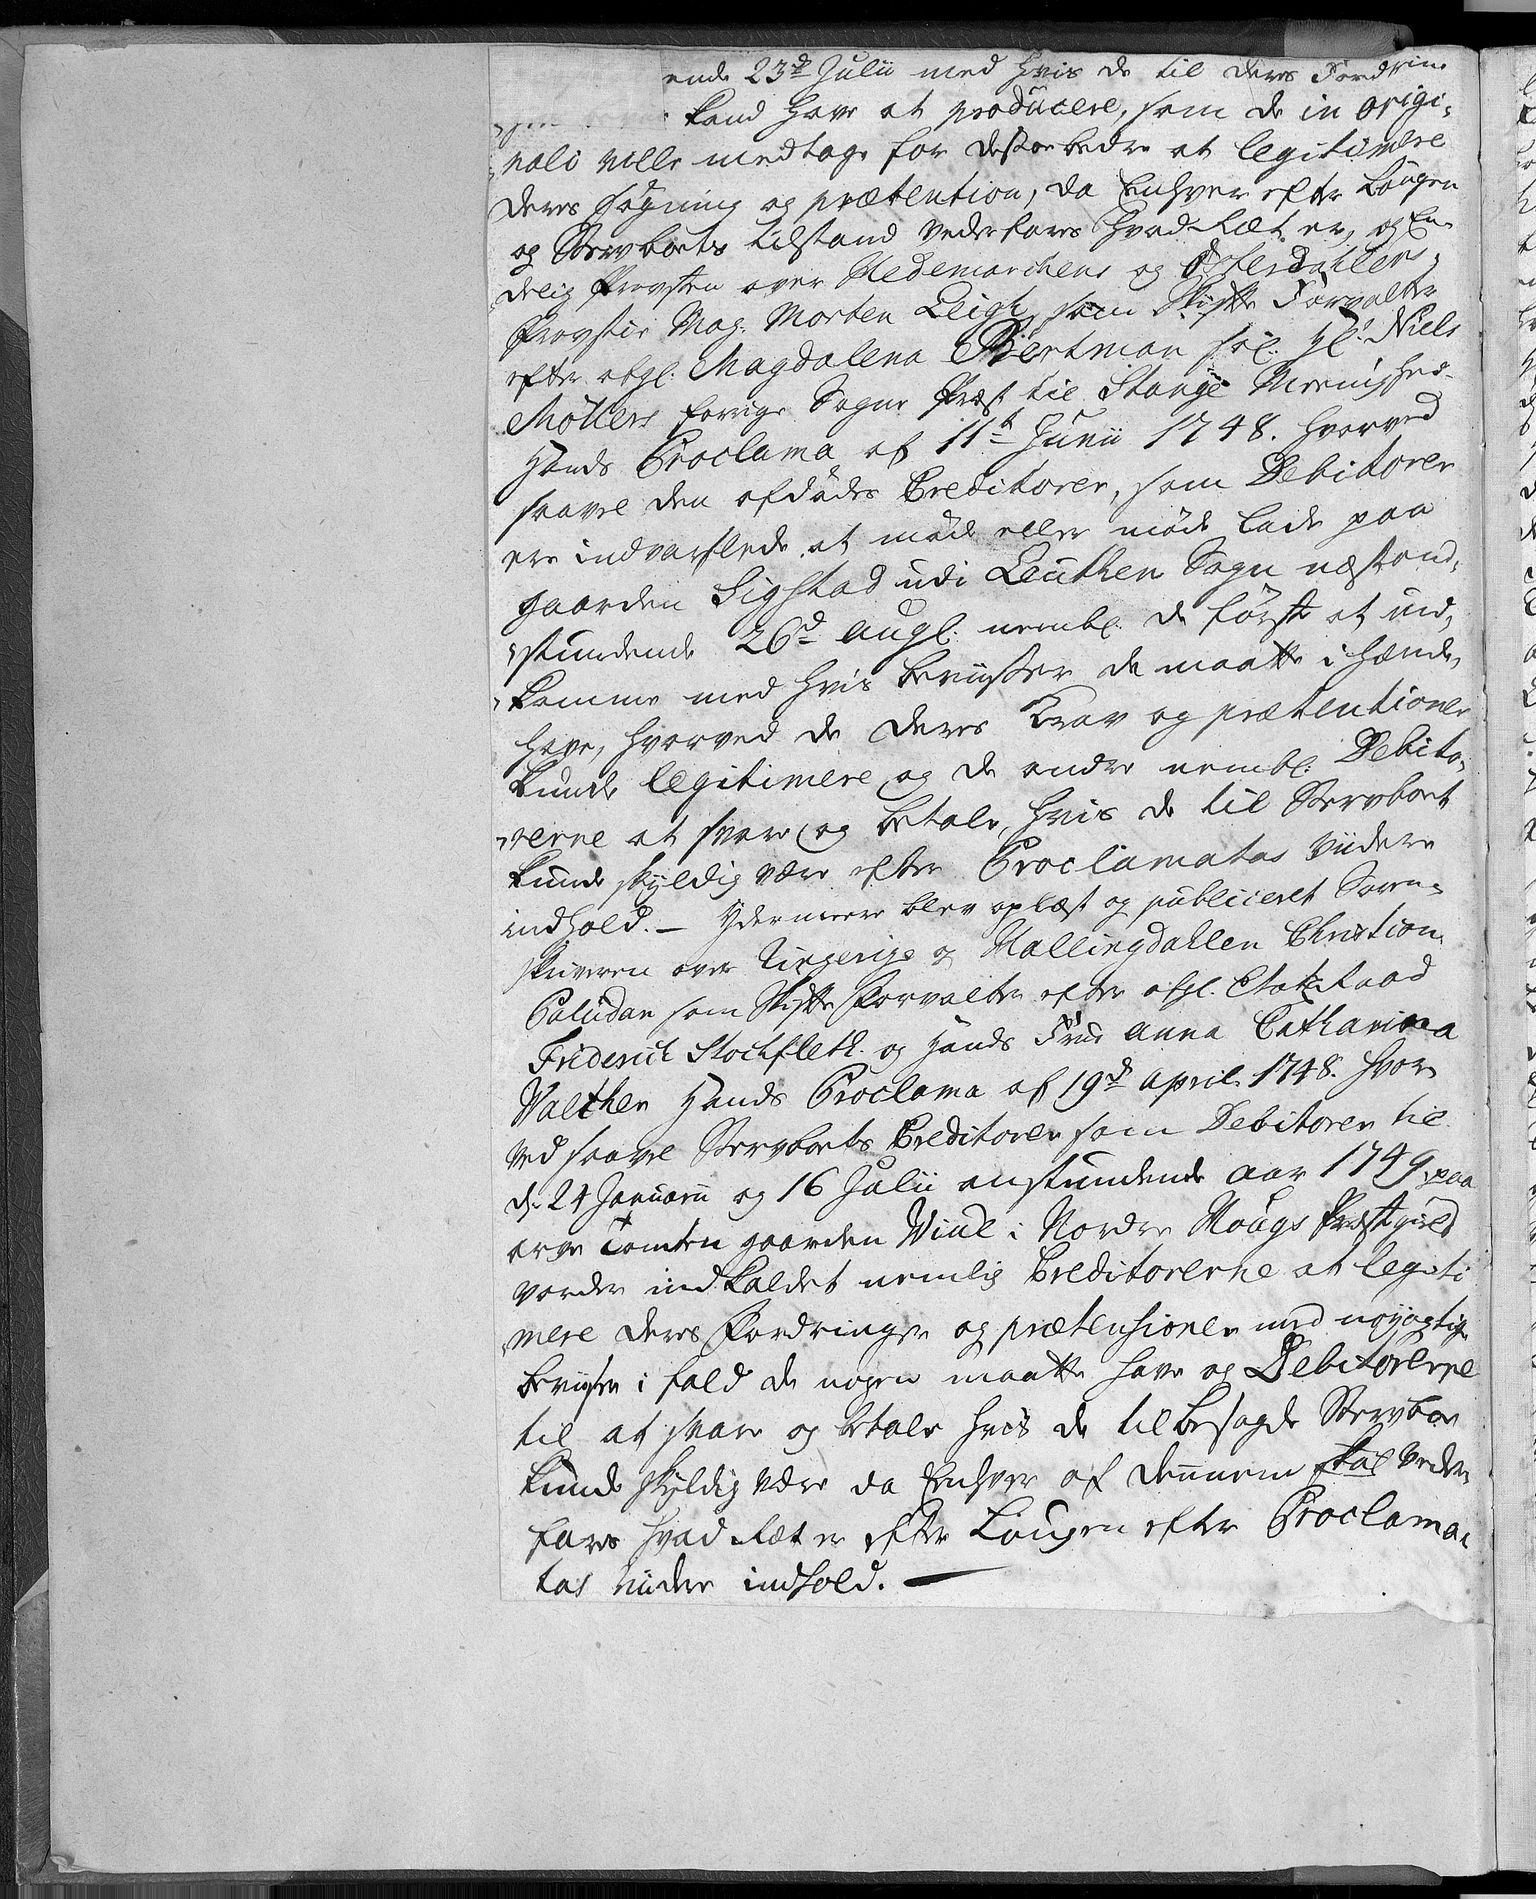 ende 23de Julii med hvis de til deres Fordring
kand have at producere, som de in origi-
nali ville medtage for desto bedre at legitimere
deres søgning og prætention, da Enhver efter Lougen
og Stervboets tilstand vederfares hvad Ræt er, og En-
delig Provsten over Hedemarchens og Østerdahlens
Provstie Mag. Morten Leigh som Skifte Forvalter
efter afgl. Magdalena Bertman sal. Hr. Niels
Møllers forrige Sogne Præst til Stange Meenighed
Hands Proclama af 11te Junii 1748. hvorved
saavel den afdødes Creditorer, som Debitorer
ere indvarslede at møde eller møde lade paa
gaarden Sigstad udi Leuthen Sogn næstand-
stundende 26de augl. nembl. de første at ind-
komme med hvis beviisser de maatte i hænde
have, hvorved de deres Krav og prætentioner
kunde legitimere og de andre nembl. Debito-
rerne at svare og betale, hvis de til Stervboet
kunde skyldig være efter Proclamatas viidere
indhold. — Ydermeere blev oplæst og publiceret Soren-
skriveren over Ringerige og Hallingdahlen Christian
Paludan som Skifte Forvalter efter afgl. Etatz Raad
Friderich Stochfleth og Hands Frue anna Catharina
Walther Hands Proclama af 19de April 1748. hvor-
ved saavel Stervboets Creditorer som Debitorer til
d. 24 Januarii og 16 Julii anstundende aar 1749 paa
arve Tomten gaarden Viul i Nordre Hougs Præstegield
vorder indkaldet nemlig Creditorerne at legiti
mere deres Fordringer og prætensioner med nøyagtige
beviiser i fald de nogen maatte have og Debitorerne
til at svare og betale hvis de til besagde Stervboe
kunde skyldig være da Enhver af dennem skal veder-
fares hvad Ræt er efter Lougen efter Proclama-
tas viidere indhold. —